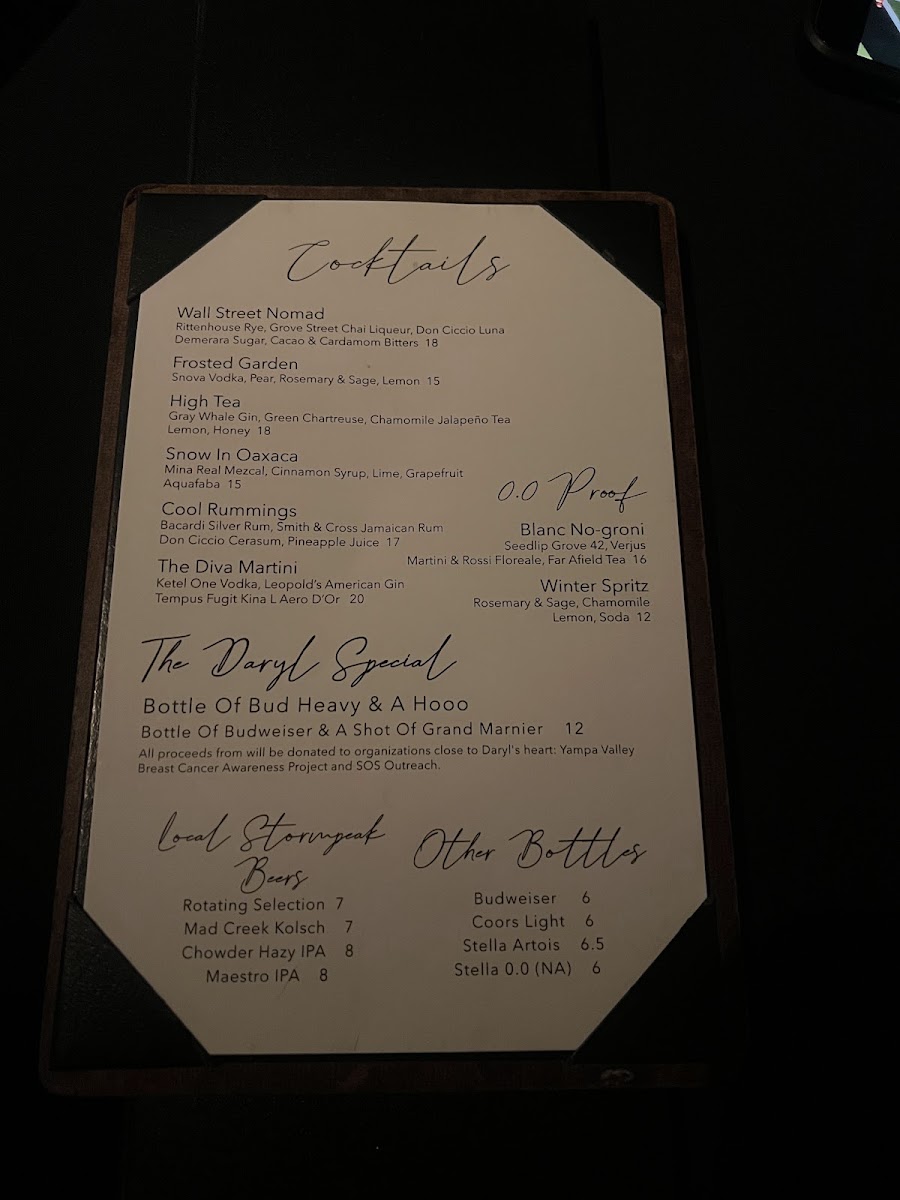 Cocktails
Wall Street Nomad
Rittenhouse Rye, Grove Street Chai Liqueur, Don Ciccio Luna
Demerara Sugar, Cacao & Cardamom Bitters 18
Frosted Garden
Snova Vodka, Pear, Rosemary & Sage, Lemon 15
High Tea
Gray Whale Gin, Green Chartreuse, Chamomile Jalapeño Tea
Lemon, Honey 18
Snow In Oaxaca
Mina Real Mezcal, Cinnamon Syrup, Lime, Grapefruit
Aquafaba 15
Cool Rummings
Bacardi Silver Rum, Smith & Cross Jamaican Rum
Don Ciccio Cerasum, Pineapple Juice 17
The Diva Martini
Ketel One Vodka, Leopold's American Gin
Tempus Fugit Kina L Aero D'Or 20
0.0 Proof
Blanc No-groni
Seedlip Grove 42, Verjus
Martini & Rossi Floreale, Far Afield Tea 16
Winter Spritz
Rosemary & Sage, Chamomile
Lemon, Soda 12
The Daryl Special
Bottle Of Bud Heavy & A Hooo
Bottle Of Budweiser & A Shot Of Grand Marnier 12
All proceeds from will be donated to organizations close to Daryl's heart: Yampa Valley
Breast Cancer Awareness Project and SOS Outreach.
Local Stormpeak
Beers
Rotating Selection 7
Mad Creek Kolsch 7
Chowder Hazy IPA 8
Maestro IPA 8
Other Bottles
Budweiser 6
Coors Light 6
Stella Artois 6.5
Stella 0.0 (NA) 6